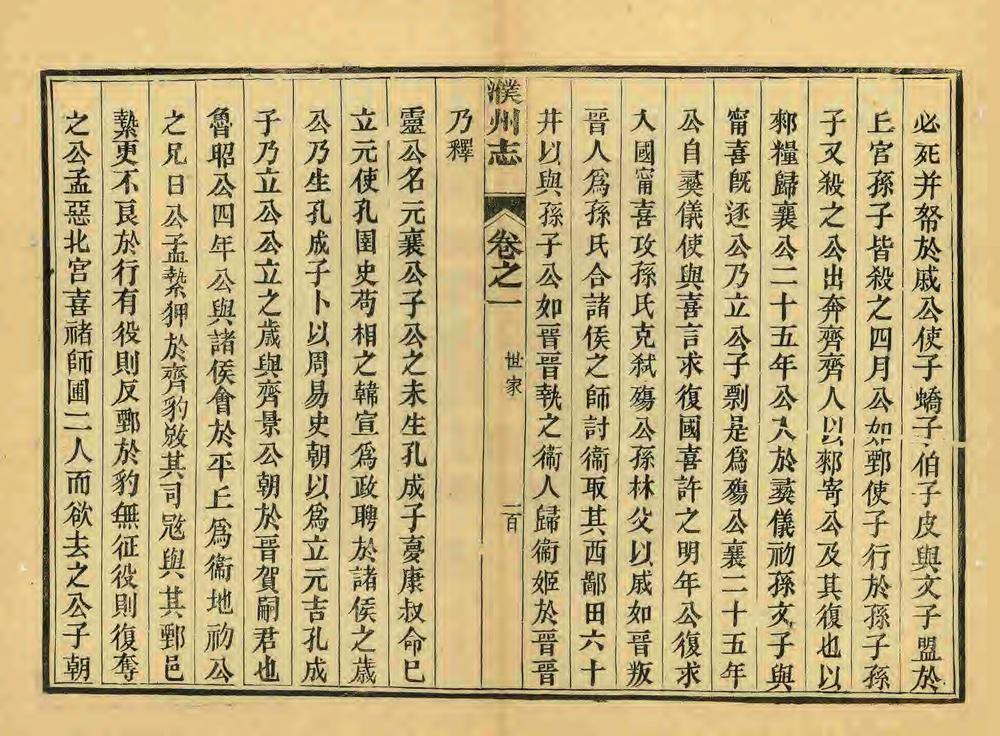 必死并帑於戚公使子蟜子伯子皮與文子盟於
丘宮孫子皆殺之四月公如鄄使子行於孫子孫
子又殺之公出奔齊齊人以郲寄公及其復也以
郲糧歸襄公二十五年公入於夷儀初孫文子與
甯喜旣逐公乃立公子剽是爲殤公襄二十五年
公自夷儀使與喜言求復國喜許之明年公復求
入國甯喜攻孫氏克弑殤公孫林父以戚如晉叛
晉人爲孫氏合諸侯之師討衞取其西鄙田六十
井以與孫子公如晉晉執之衞人歸衞姬於晉晉
濮州志 卷之一 世家 二百
乃釋
靈公名元襄公子公之未生孔成子夢康叔命已
立元使孔圉史苟相之韓宣爲政聘於諸侯之歲
公乃生孔成子卜以周易史朝以爲立元吉孔成
子乃立公公立之歲與齊景公朝於晉賀嗣君也
魯昭公四年公與諸侯會於平丘爲衞地初公
之兄曰公孟縶狎於齊豹敓其司寇與其鄄邑
縶更不良於行有役則反鄄於豹無征役則復奪
之公孟惡北宮喜禇師圃二人而欲去之公子朝